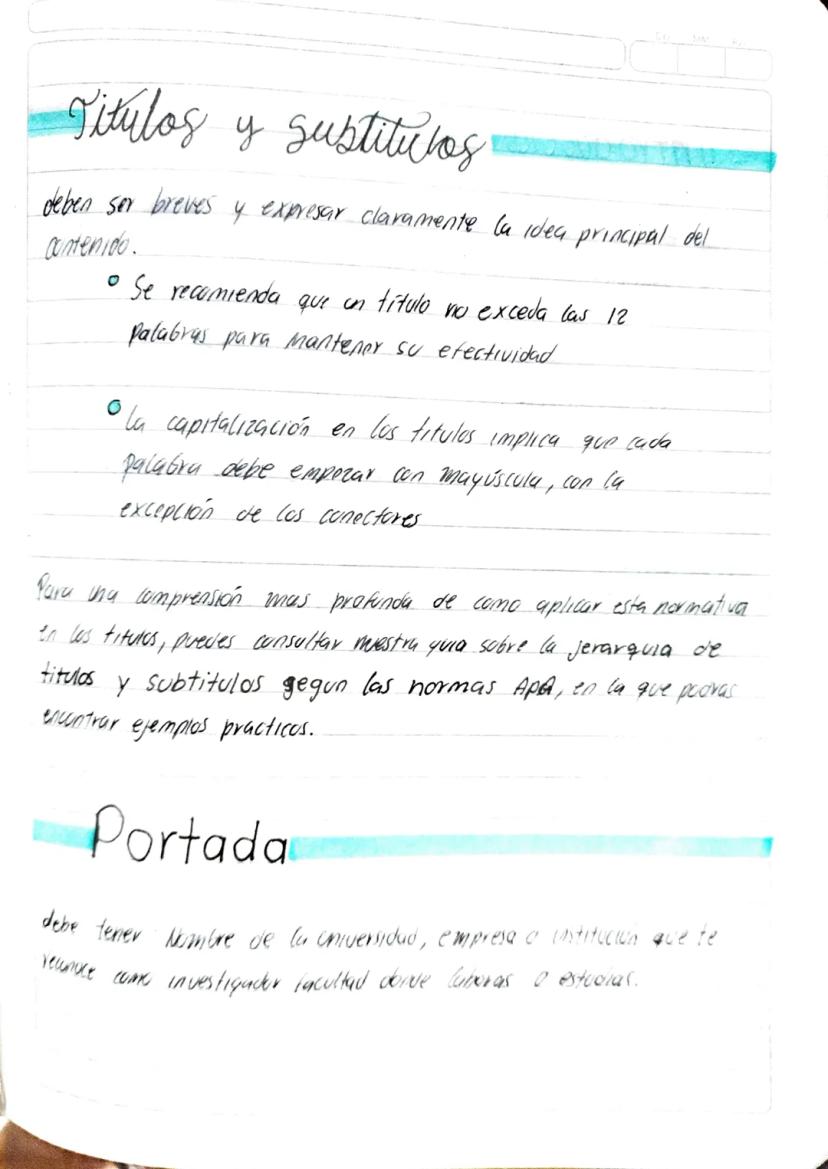 Titulos y subtitulos
deben ser breves y expresar claramente la idea principal del
contenido.
Se recomienda que un título no exceda las 12
palabras para mantener su efectividad
La capitalización en los titulos implica que cada
palabra debe empezar con mayúscula, con la
excepción de los conectores
Para una comprensión mas profunda de como aplicar esta normativa
en los titulos, puedes consultar nuestra guia sobre la jerarquia de
titulos y subtitulos segun las normas APA, en la que podras
encontrar ejemplos practicos.
Portada
debe tener Nombre de la universidad, empresa o institución que te
reconoce como investigador facultad donde laboras o estudias.